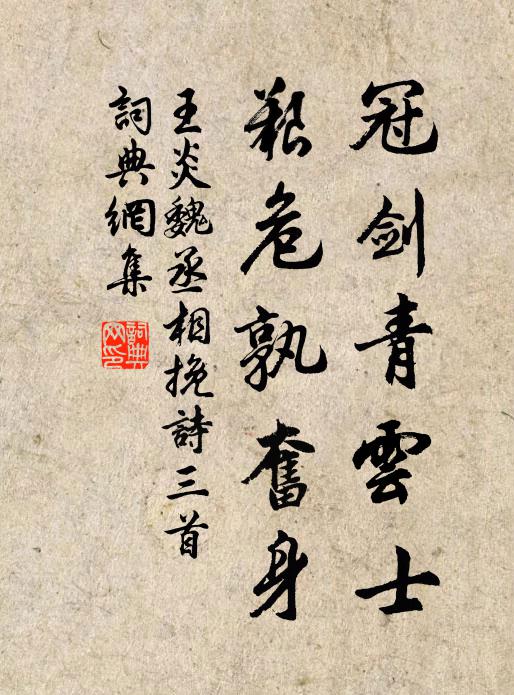 冠剑青雲士
艱危孰奮身
王炎魏丞相挽詩三首
詞典網集
詞典网印